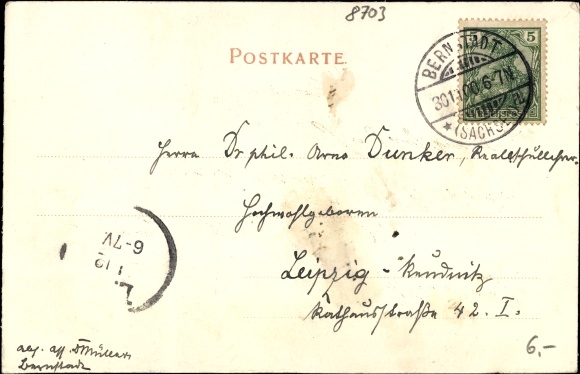 8703
POSTKARTE.
5
BERNSTADT
30 11 00 6-7N.
*(SACHSEN)
Herrn Dr phil. Arno Dunker, Realschullehrer.
Hochwohlgeboren
Leipzig - Reudnitz
Rathausstraße 42. I.
6-7V
1 12
L.
Müller
Bernstadt
6,-